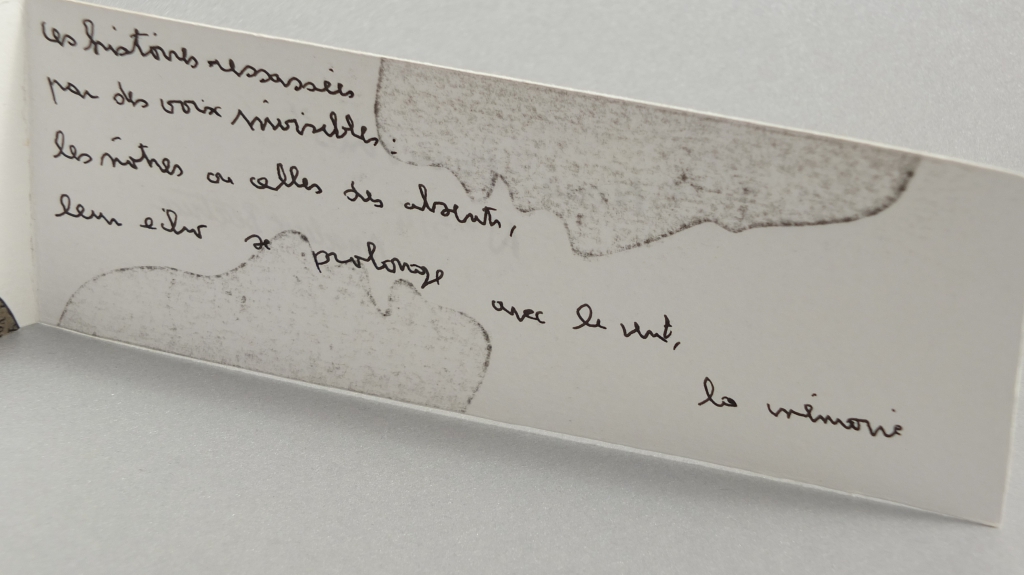 Les histoires ressassées
par des voix invisibles :
les nôtres ou celles des absents,
leur écho se prolonge
avec le vent,
la mémoire